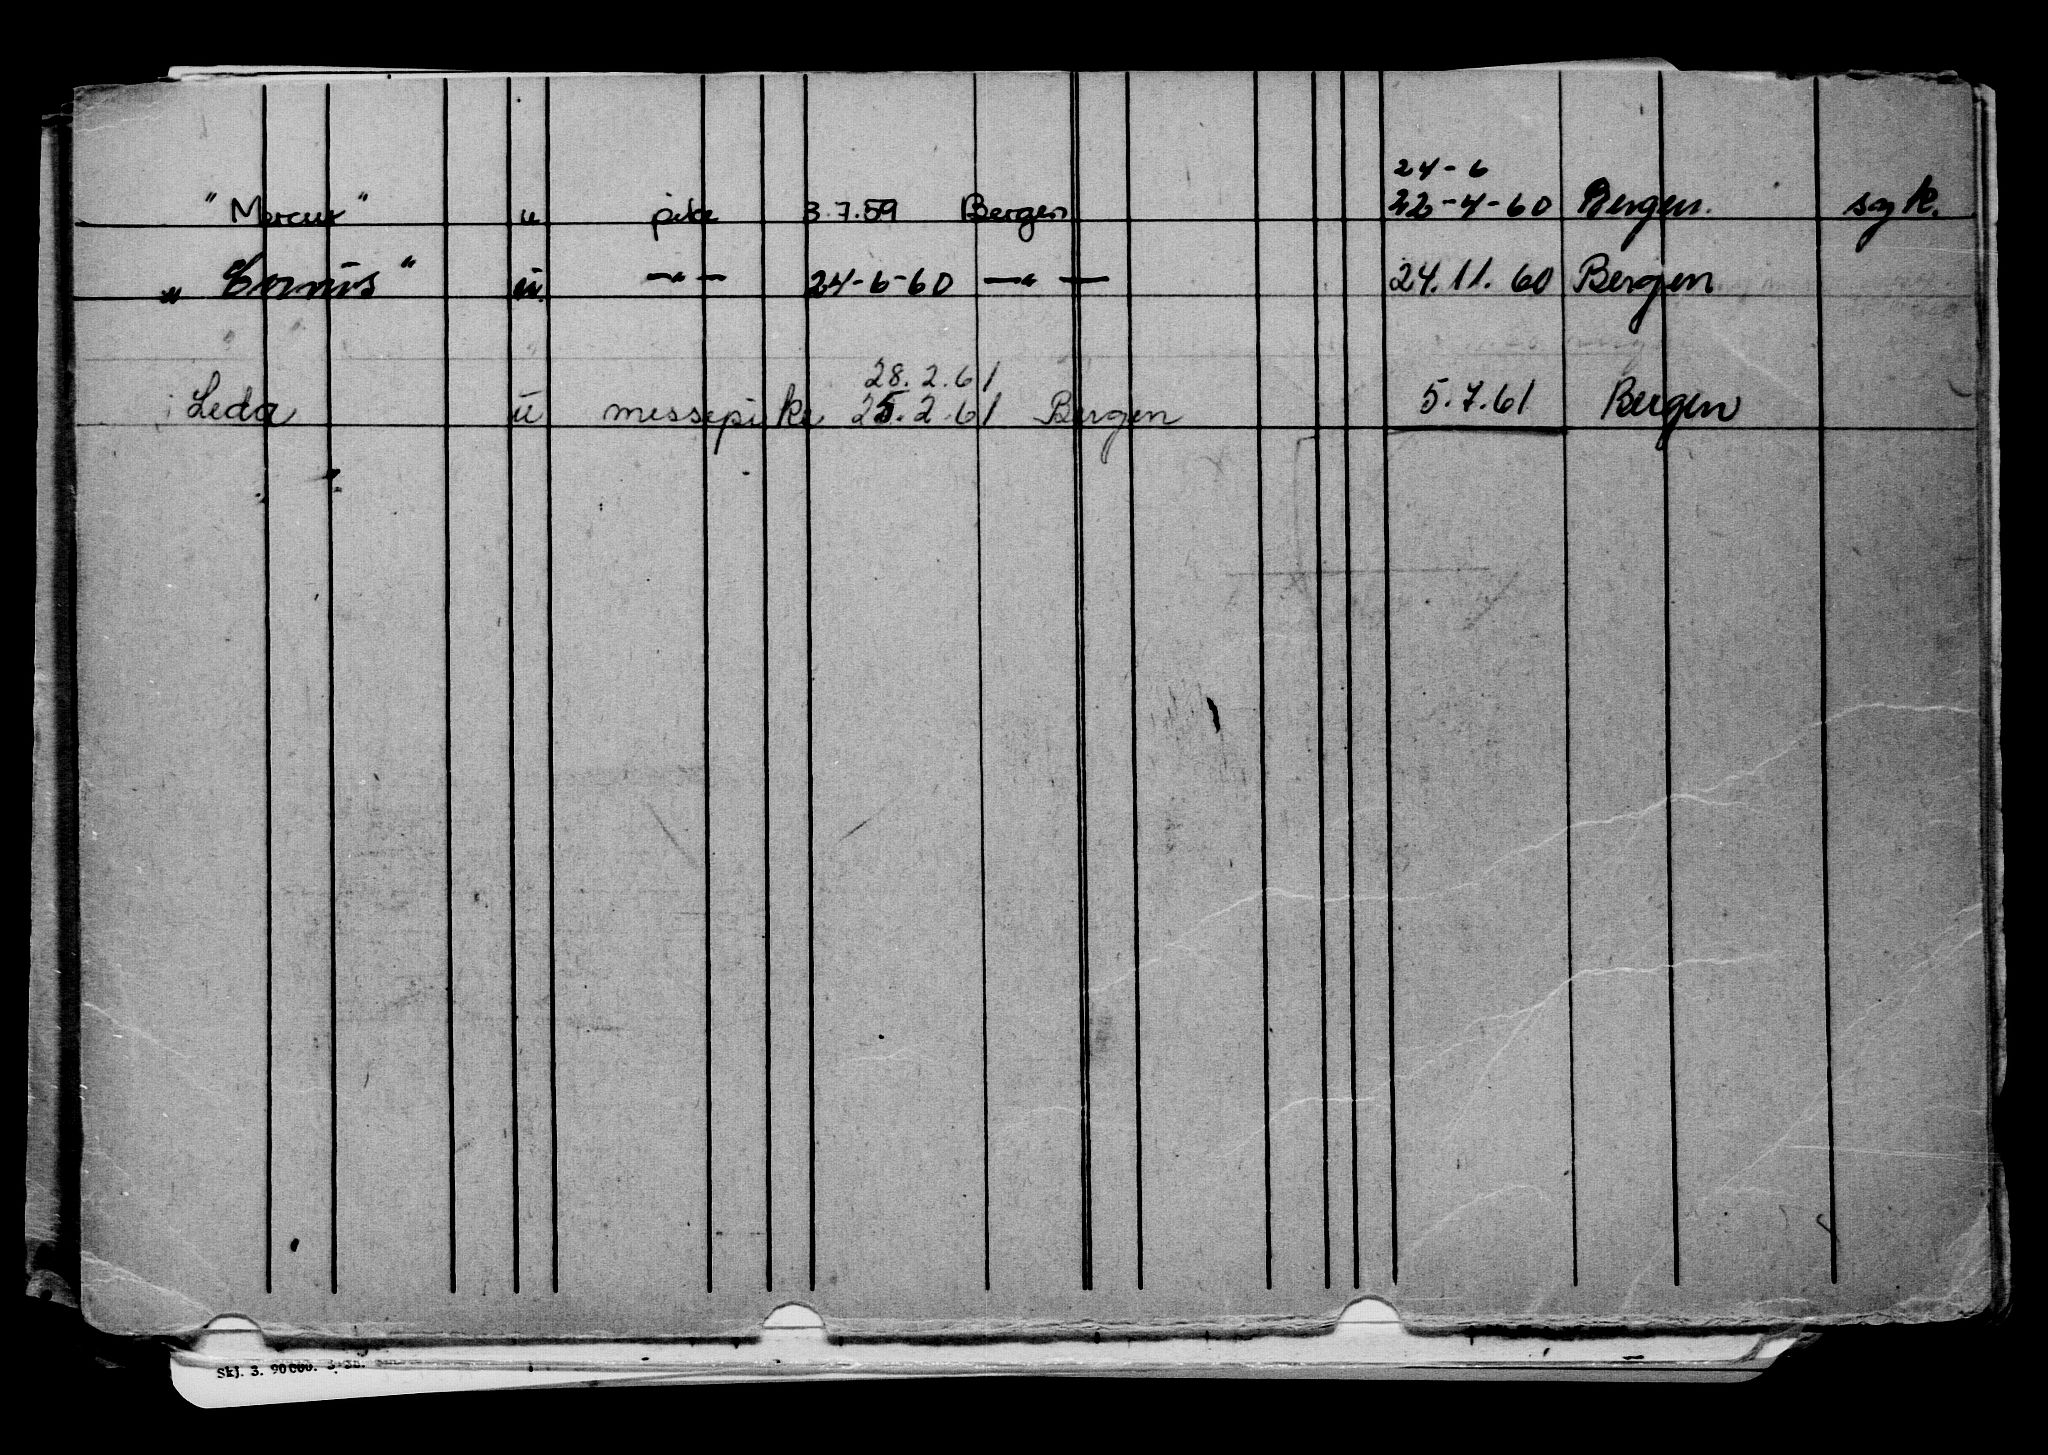 24-6
"Mercur" u pike 3.7.59 Bergen 22-4-60 Bergen. syk.
„ Cornis" u. —"— 24-6-60 —"— 24.11.60 Bergen
28.2.61
Leda u messepike 25.2.61 Bergen 5.7.61 Bergen
Skj. 3. 90000. 3-38.